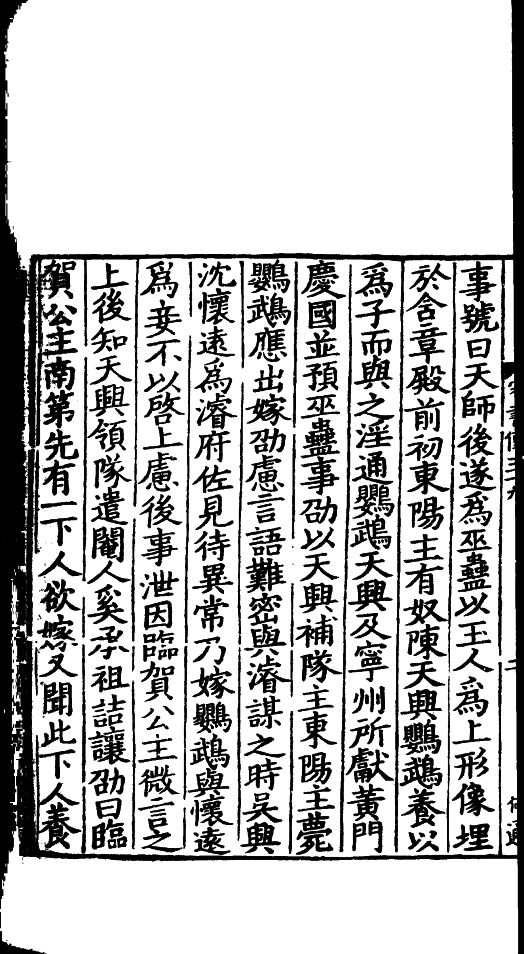 事號曰天師後遂爲巫蠱以玉人爲上形像埋
於含章殿前初東陽主有奴陳天興鸚鵡養以
爲子而與之淫通鸚鵡天興及寧州所獻黃門
慶國並預巫蠱事劭以天興補隊主東陽主薨
鸚鵡應出嫁劭慮言語難密與濬謀之時吳興
沈懷遠爲濬府佐見待異常乃嫁鸚鵡與懷遠
爲妾不以啓上慮後事泄因臨賀公主微言之
上後知天興領隊遣閹人奚承祖詰讓劭曰臨
賀公主南第先有一下人欲嫁又聞此下人養